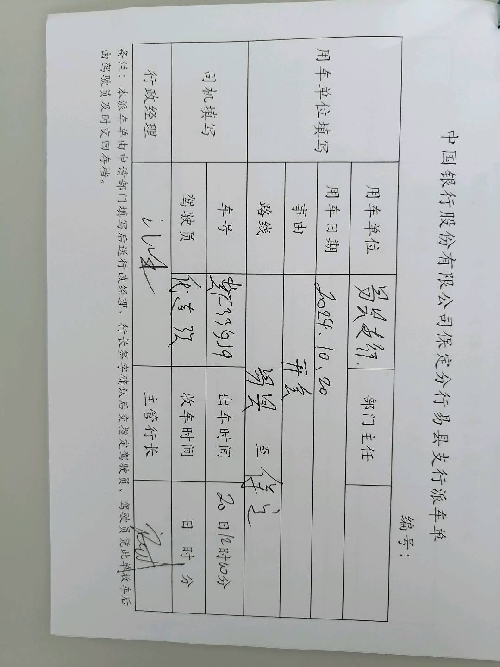 中国银行股份有限公司保定分行易县支行派车单
编号：
用车单位填写 用车单位 易县支行 部门主任
用车日期 2024.10.20
事由 开会
路线 易县 至 保定
司机填写 车号 出车时间 20日 时 分
驾驶员 收车时间 日 时 分
行政经理 主管行长
备注：本派车单由申请部门填写后送行政经理、行长签字确认后交指定驾驶员，驾驶员凭此单收车后
由驾驶员及时交回存档。